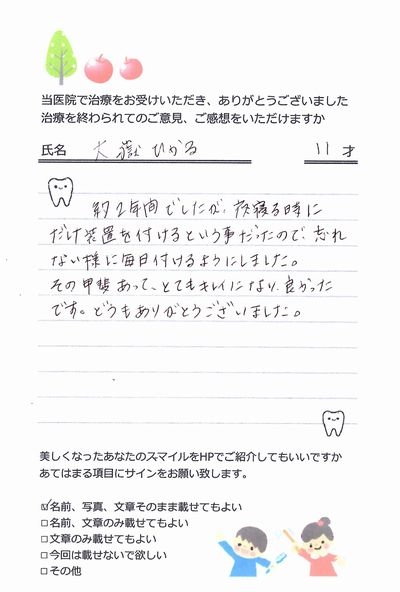 当医院で治療をお受けいただき、ありがとうございました
治療を終わられてのご意見、ご感想をいただけますか
氏名 大嶽ひかる 11才
約2年間でしたが、夜寝る時に
だけ装置を付けるという事だったので、忘れ
ない様に毎日付けるようにしました。
その甲斐あって、とてもキレイになり、良かった
です。どうもありがとうございました。
美しくなったあなたのスマイルをHPでご紹介してもいいですか
あてはまる項目にサインをお願い致します。
☑名前、写真、文章そのまま載せてもよい
□名前、文章のみ載せてもよい
□文章のみ載せてもよい
□今回は載せないで欲しい
□その他